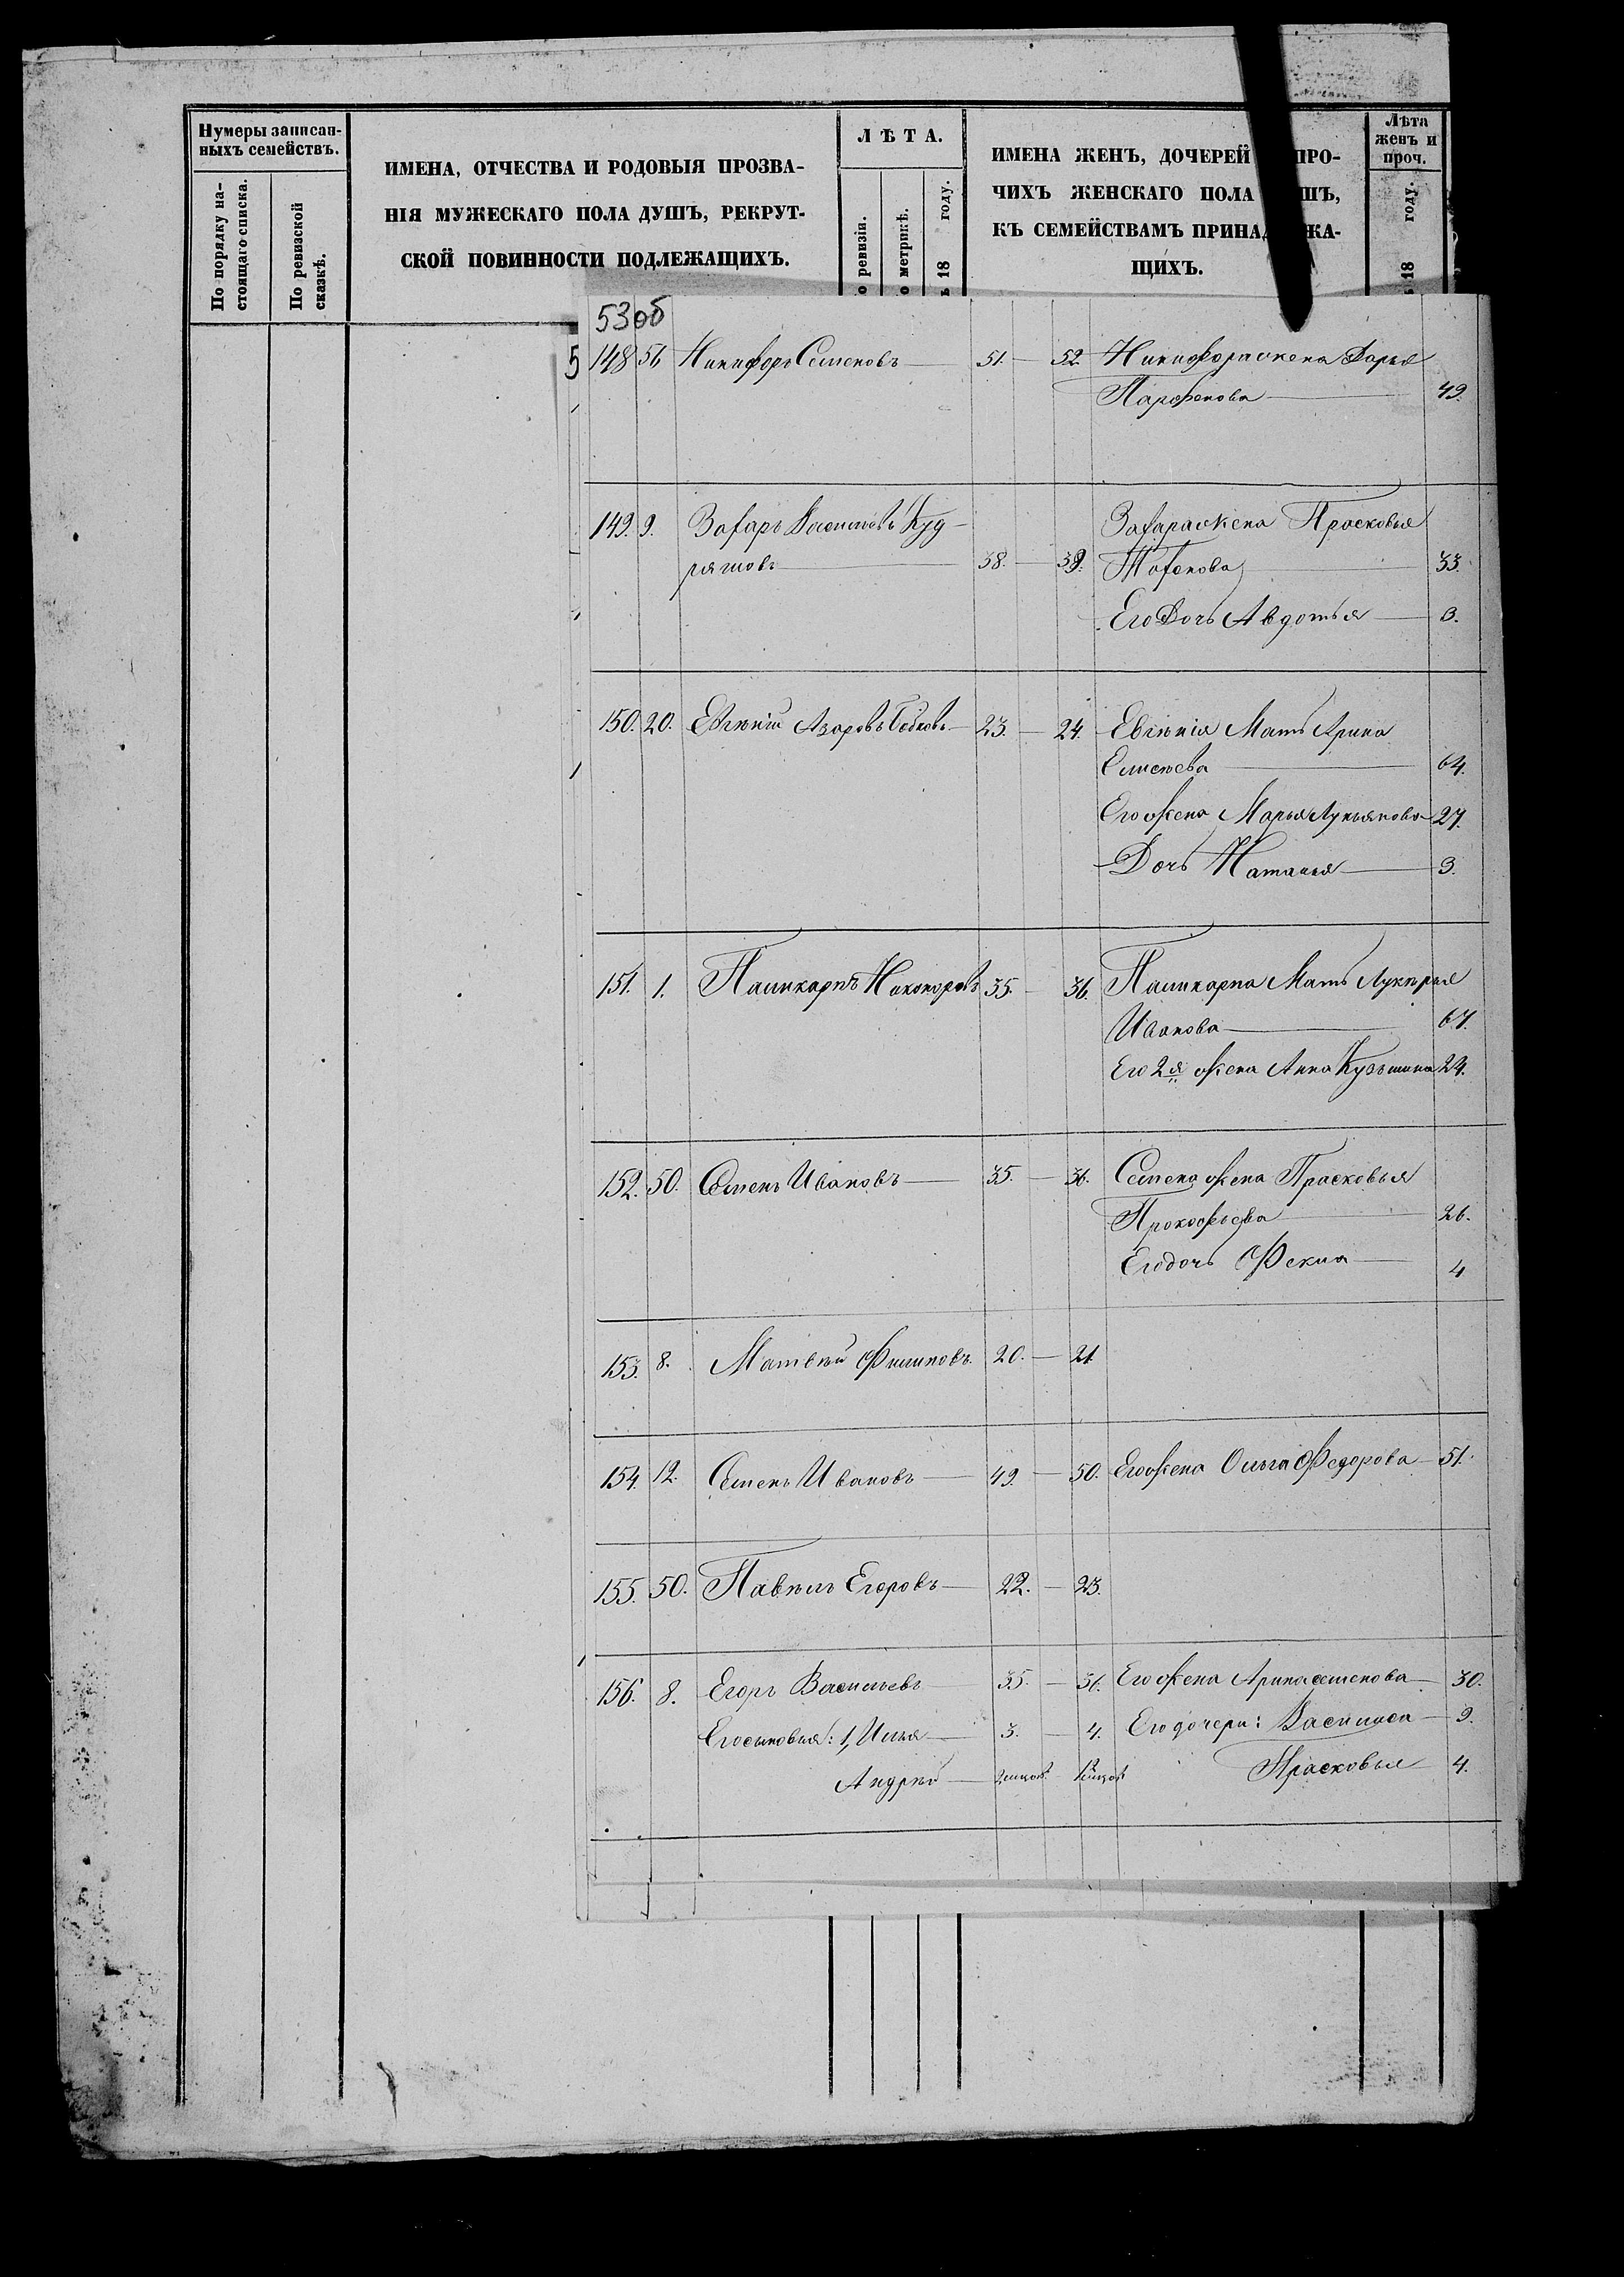 Нумеры записан-
ныхъ семействъ.
По порядку на-
стоящаго списка.
По ревизской
сказкѣ.
ИМЕНА, ОТЧЕСТВА И РОДОВЫЯ ПРОЗВА-
НІЯ МУЖЕСКАГО ПОЛА ДУШЪ, РЕКРУТ-
СКОЙ ПОВИННОСТИ ПОДЛЕЖАЩИХЪ.
ЛѢТА.
о ревизіи.
о метрикѣ.
ъ 18 году.
ИМЕНА ЖЕНЪ, ДОЧЕРЕЙ ПРО-
ЧИХЪ ЖЕНСКАГО ПОЛА ШЪ,
КЪ СЕМЕЙСТВАМЪ ПРИНАД ЖА-
ЩИХЪ.
Лѣта
женъ и
проч.
ъ 18 году.
53об
5 148 56 Никифоръ Семеновъ 51. 52. Никифора жена Дарья
Парфенова 49.
149. 9. Захаръ Васильевъ Куд-
ряшовъ 38. 39. Захара жена Прасковья
33.
Его Дочь Авдотья 3.
150. 20. Евгѣній Азаровъ 23. 24. Евгѣнія Мать Арина
Елисѣева 64.
Его жена Марья Лукьянова 27.
Дочь Наталья 3.
151. 1. Паликарпъ Никоноровъ 35. 36. Паликарпа Мать Лукѣрья
Иванова 67.
Его 2я жена Анна Кузьмина 24.
152. 50. Семенъ Ивановъ 35. 36. Семена жена Прасковья
Прокофьева 26.
Его дочь Фекла 4
153. 8. Матвѣй Филиповъ 20. 21
154. 12. Семенъ Ивановъ 49. 50. Его жена Ольга Федорова 51.
155. 50. Павѣлъ Егоровъ 22. 23.
156. 8. Егоръ Васильевъ 35. 36. Его жена Арина Семенова 30.
Его сыновья: 1, Илья 3. 4. Его дочери: Василиса 9.
Андрѣй Прасковья 4.